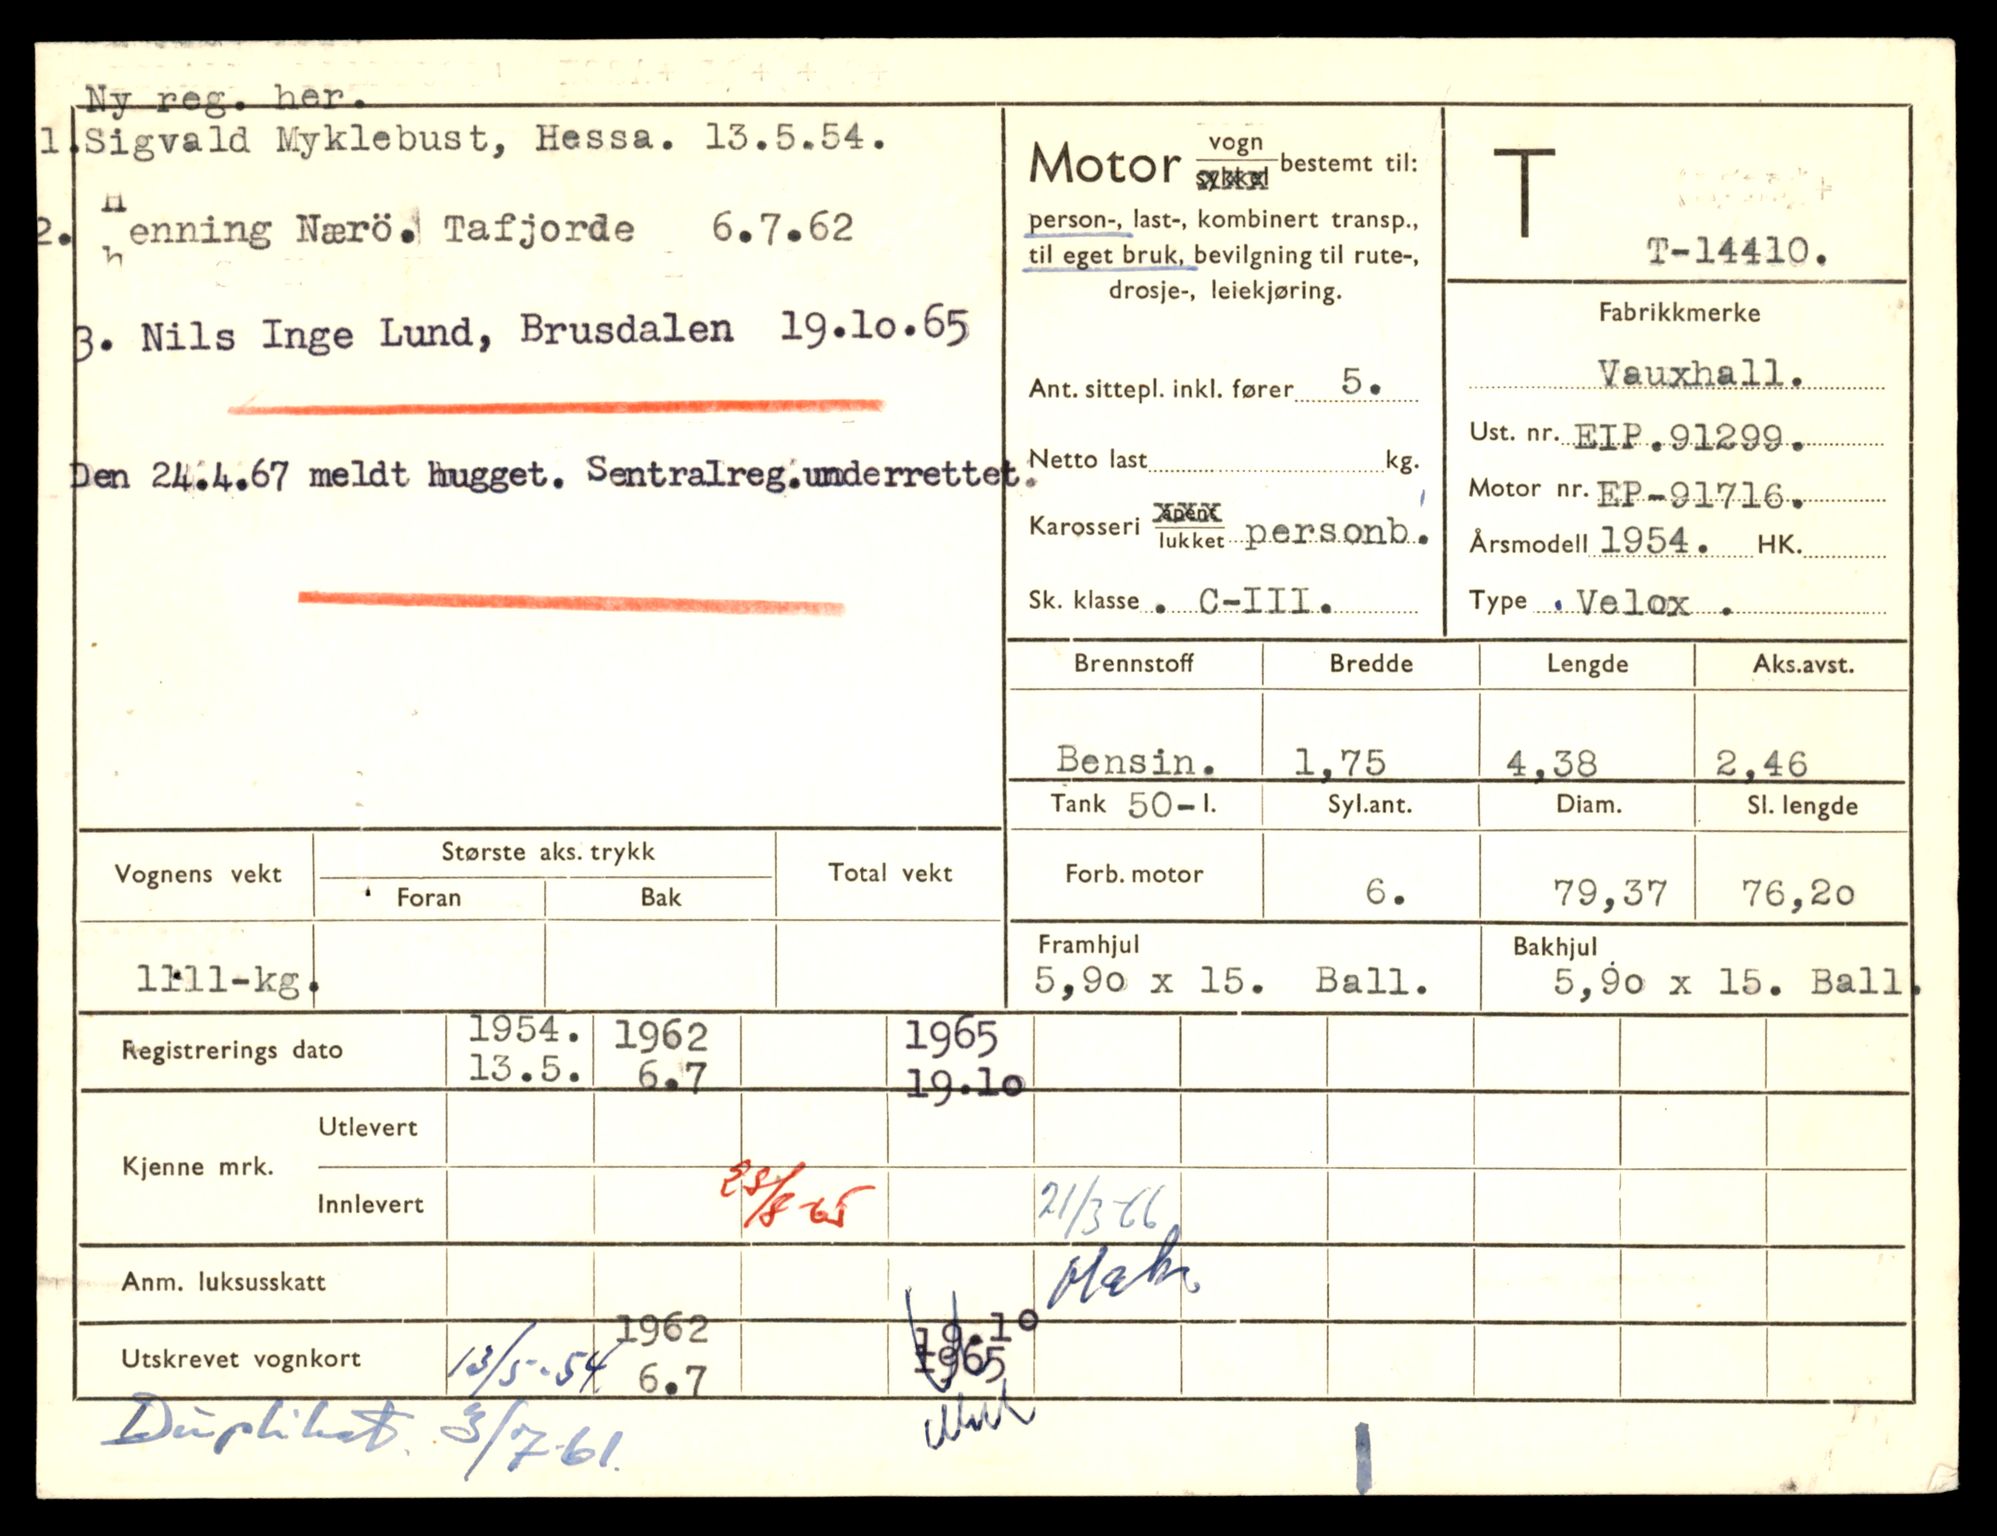 Ny reg. her.
1.Sigvald Myklebust, Hessa. 13.5.54.
2. Henning Nærö. Tafjorde 6.7.62
3. Nils Inge Lund, Brusdalen 19.1o.65
Den 24.4.67 meldt hugget. Sentralreg.underrettet.
Motor vogn sykkel bestemt til:
person-, last-, kombinert transp.,
til eget bruk, bevilgning til rute-,
drosje-, leiekjøring.
Ant. sittepl. inkl. fører 5.
Netto last kg.
Karosseri åpent lukket personb.
Sk. klasse . C-III.
T
T-14410.
Fabrikkmerke
Vauxhall.
Ust. nr. EIP.91299.
Motor nr. EP-91716.
Årsmodell 1954. HK.
Type . Velox .
Brennstoff Bredde Lengde Aks.avst.
Bensin. 1,75 4,38 2,46
Tank 50-l. Syl.ant. Diam. Sl. lengde
Forb. motor 6. 79,37 76,2o
Framhjul Bakhjul
5,9o x 15. Ball. 5,9o x 15. Ball.
Vognens vekt Største aks. trykk Total vekt
Foran Bak
1111-kg.
Registrerings dato 1954. 1962 1965
13.5. 6.7 19.1o
Kjenne mrk. Utlevert
Innlevert 25/8-65 21/3-66
Anm. luksusskatt
Utskrevet vognkort 13/5-54 1962 19.1o
6.7 1965
Duplikat. 3/7-61.